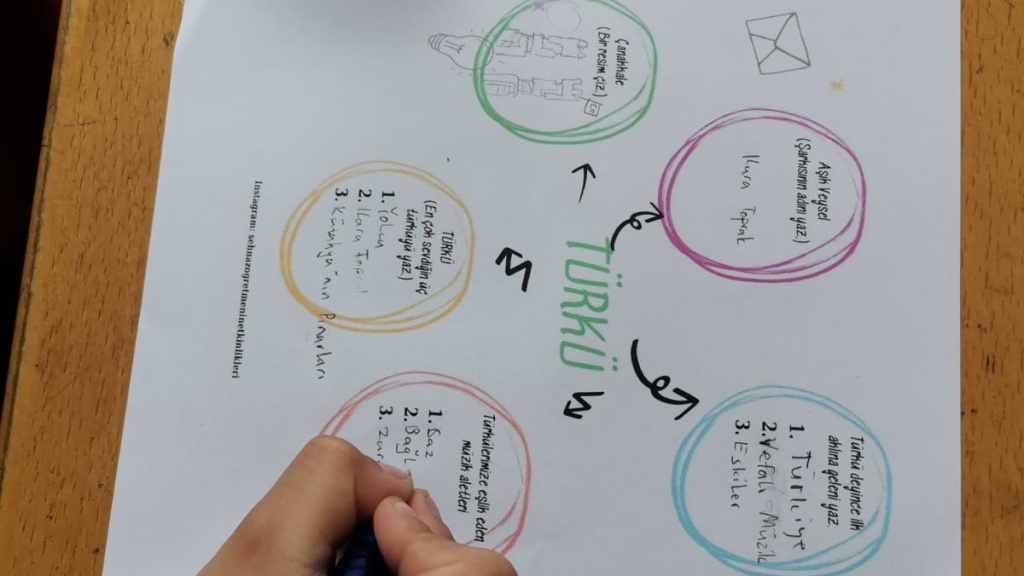 Çanakkale
(Bir resim çiz)
Aşık Veysel
(Şarkısının adını yaz)
Kara Toprak
TÜRKÜ
TÜRKÜ
(En çok sevdiğin üç
türküyü yaz)
1.
2. Kara
3. Kütahya'nın Pınarları
Türkü deyince ilk
aklına geleni yaz
1. Türkiye
2. Vefalı Müzik
3. Eskiler
Türkülerimize eşlik eden
müzik aletleri
1. Saz
2.
3.
Instagram: sehnazogretmeninetkinlikleri